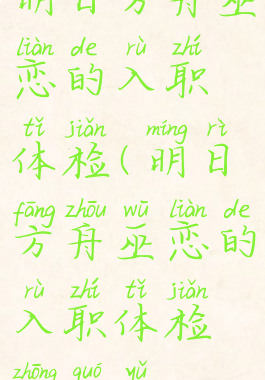 明日方舟巫
liàn de rù zhí
恋的入职
tǐ jiǎn míng rì
体检(明日
fāng zhōu wū liàn de
方舟巫恋的
rù zhí tǐ jiǎn
入职体检
zhōng guó yǔ